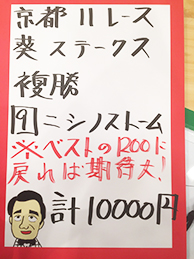 京都11レース
葵ステークス
複勝
9 ニシノストーム
※ベストの1200に
戻れば期待大!
計10000円